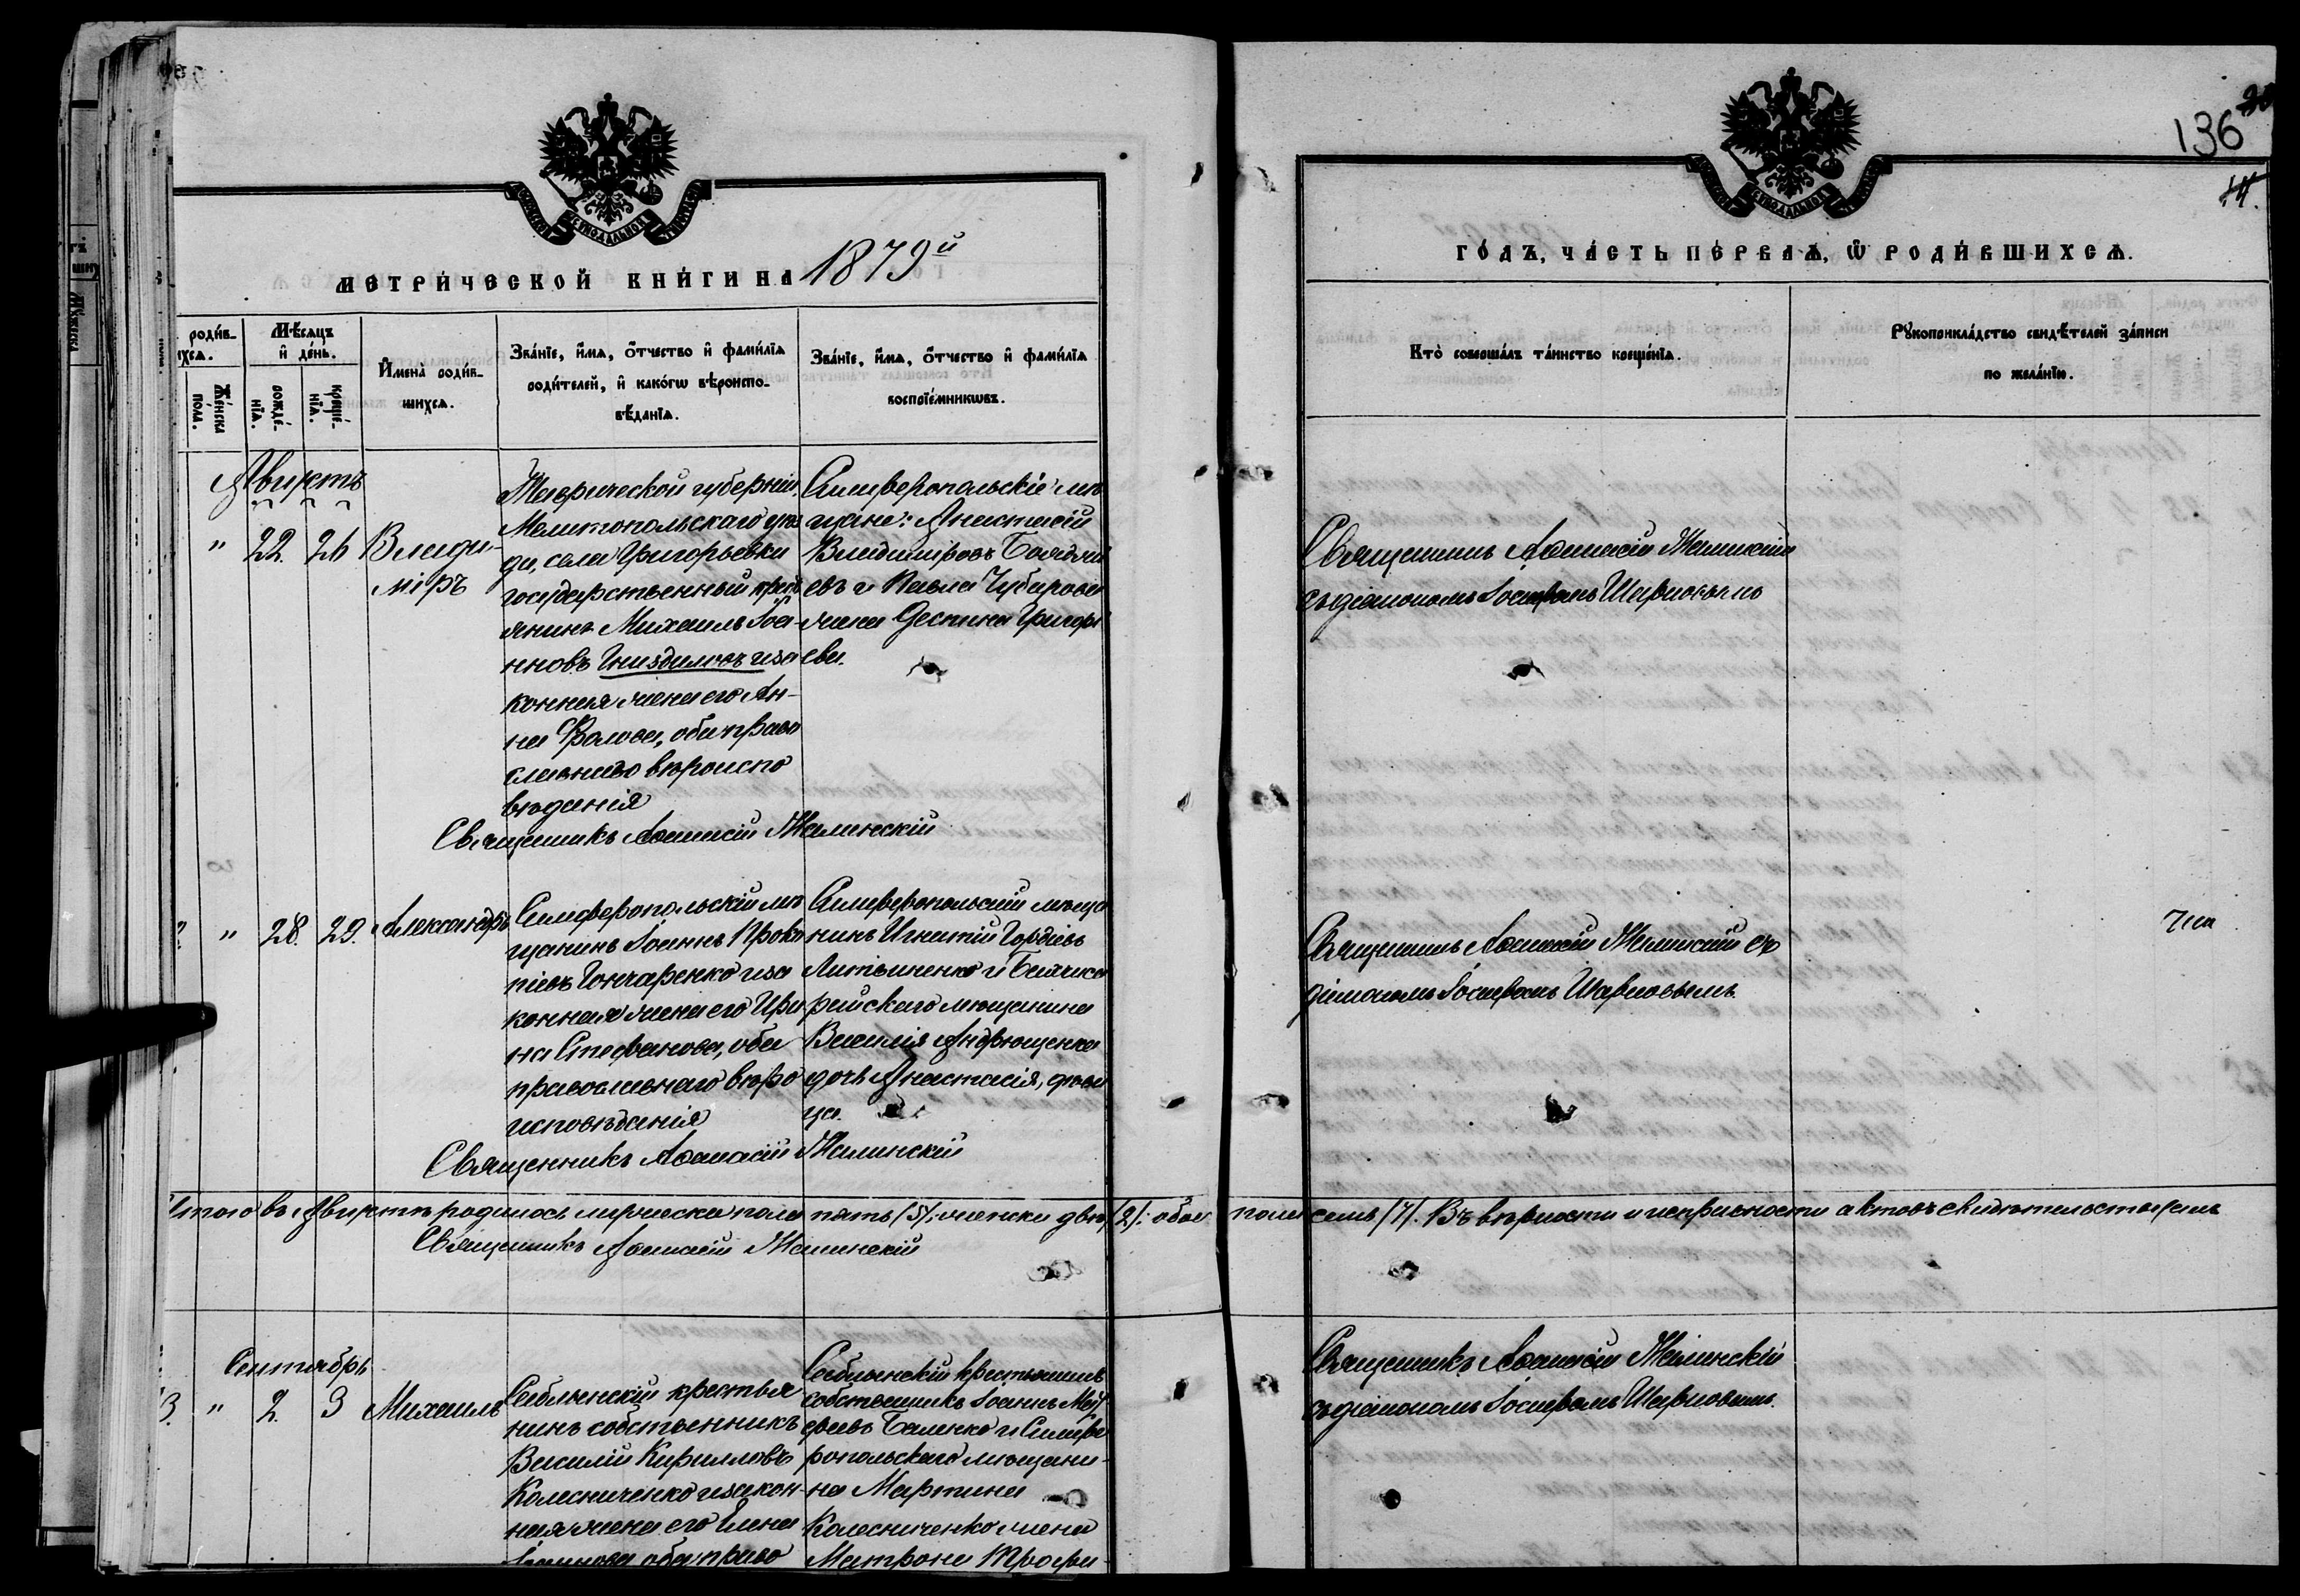 136
МЕТРИ́ЧЕСКОЙ КНИ́ГИ НА 1879й
ГО́ДЪ, ЧА́СТЬ ПЕ́РВАѦ, Ѿ РОДИ́ВШИХСѦ.
роди́в-
ихсѧ.
Же́нска
по́ла.
Мѣ́сѧцъ
и҆ де́нь.
рожде́-
нїѧ.
креще́-
нїѧ.
И҆мена̀ роди́в-
шихсѧ.
Зва́нїе, и҆́мѧ, ѻ҆́тчество и҆ фами́лїѧ
роди́телей, и҆ како́гѡ вѣроиспо-
вѣ́данїѧ.
Зва́нїе, и҆́мѧ, ѻ҆́тчество и҆ фами́лїѧ
воспрїе́мникѡвъ.
Кто̀ соверша́лъ та́инство креще́нїѧ.
Рꙋкоприкла́дство свидѣ́телей за́писи
по жела́нїю.
Августъ
" 22. 26 Влади-
міръ
Таврической губерніи,
Мелитопольскаго уѣз
да, села Григорьевки
государственный крест
янинъ Михаилъ Іоа-
нновъ Гниздиловъ и за
конная жена его Ан-
на Фролова, оба право
славнаго вѣроиспо
вѣданія
Симферопольскіе мѣ
щане: Анастасій
Владиміровъ
евъ и Павла Чубарова
жена Деспина Григорі
ева.
Священникъ Аѳанасій Жалинскій
съ діакономъ Іосифомъ
Священникъ Аѳанасій Жалинскій
" 28. 29. Александръ
Симферопольскій мѣ
щанинъ Іоаннъ Проко
піевъ Гончаренко и за
конная жена его Ири
на Стефанова, оба
православнаго вѣро
исповѣданія
Симферопольскій мѣща
нинъ Игнатій Гордіевъ
Литвиненко и Бахчиса
райскаго мѣщанина
Василія Андрющенка
дочь Анастасія, дѣви
ца.
Священникъ Аѳанасій Жалинскій съ
діакономъ Іосифомъ
Священникъ Аѳанасій Жалинскій
Итого въ Августѣ родилось мужеска пола пять /5/; женска двѣ /2/: обоего пола семь /7/. Въ вѣрности и исправности актовъ свидѣтельствуемъ
Священникъ Аѳанасій Жалинскій
Сентябрь
3. " 2. 3 Михаилъ
Саблынскій крестья
нинъ собственникъ
Василій Кирилловъ
Колесниченко и закон-
ная жена его Елена
Іоаннова оба право
Саблынскій крестьянинъ
собственникъ Іоаннъ Мат
феевъ Баленко и Симфе
ропольскаго мѣщани-
на Мартина
Колесниченко жена
Матрона Трофи-
Священникъ Аѳанасій Жалинскій
съ діакономъ Іосифомъ